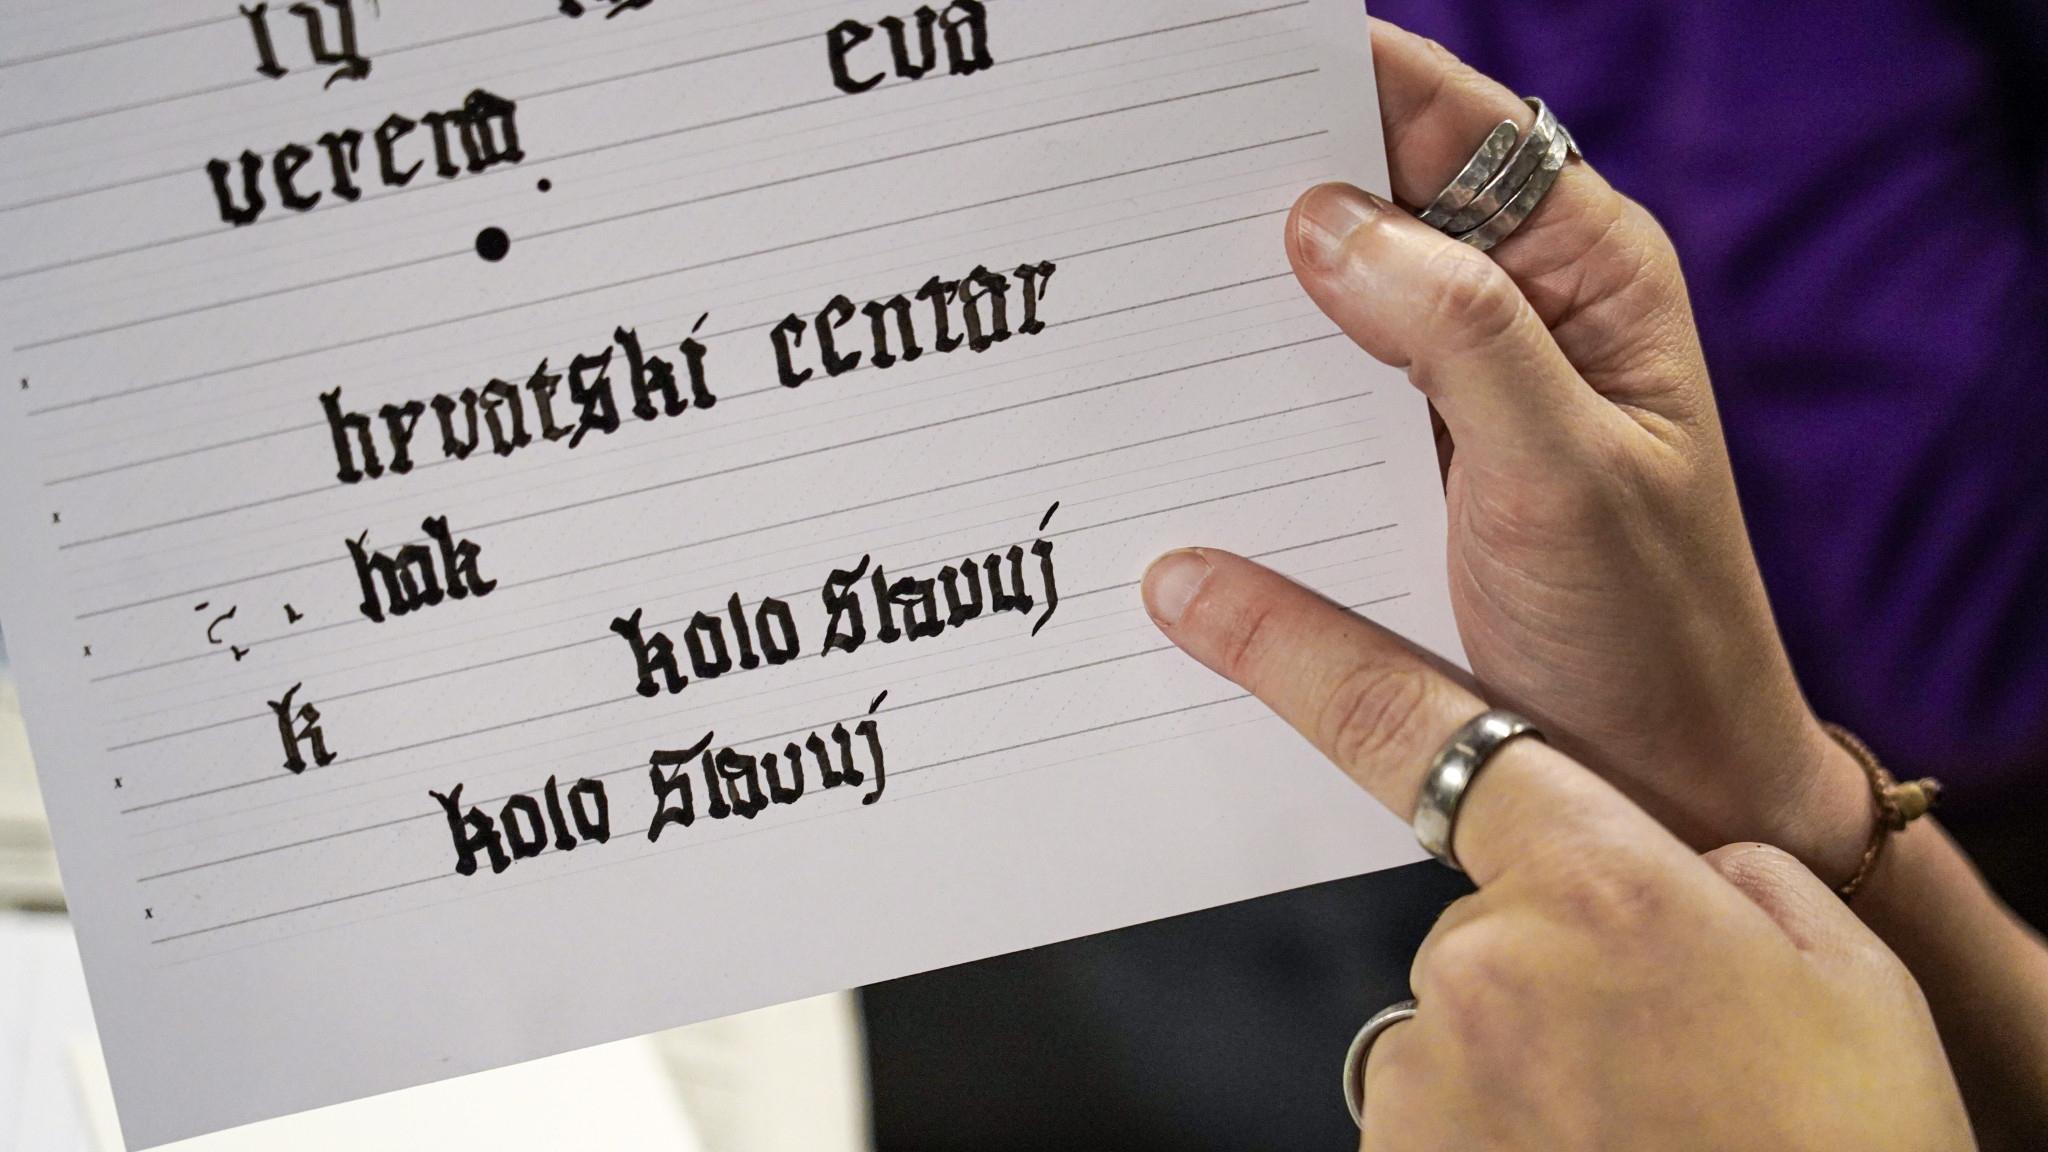 ty
eva
verem
hrvatski centar
hak
kolo Slavuj
k
kolo Slavuj
x
x
x
x
x